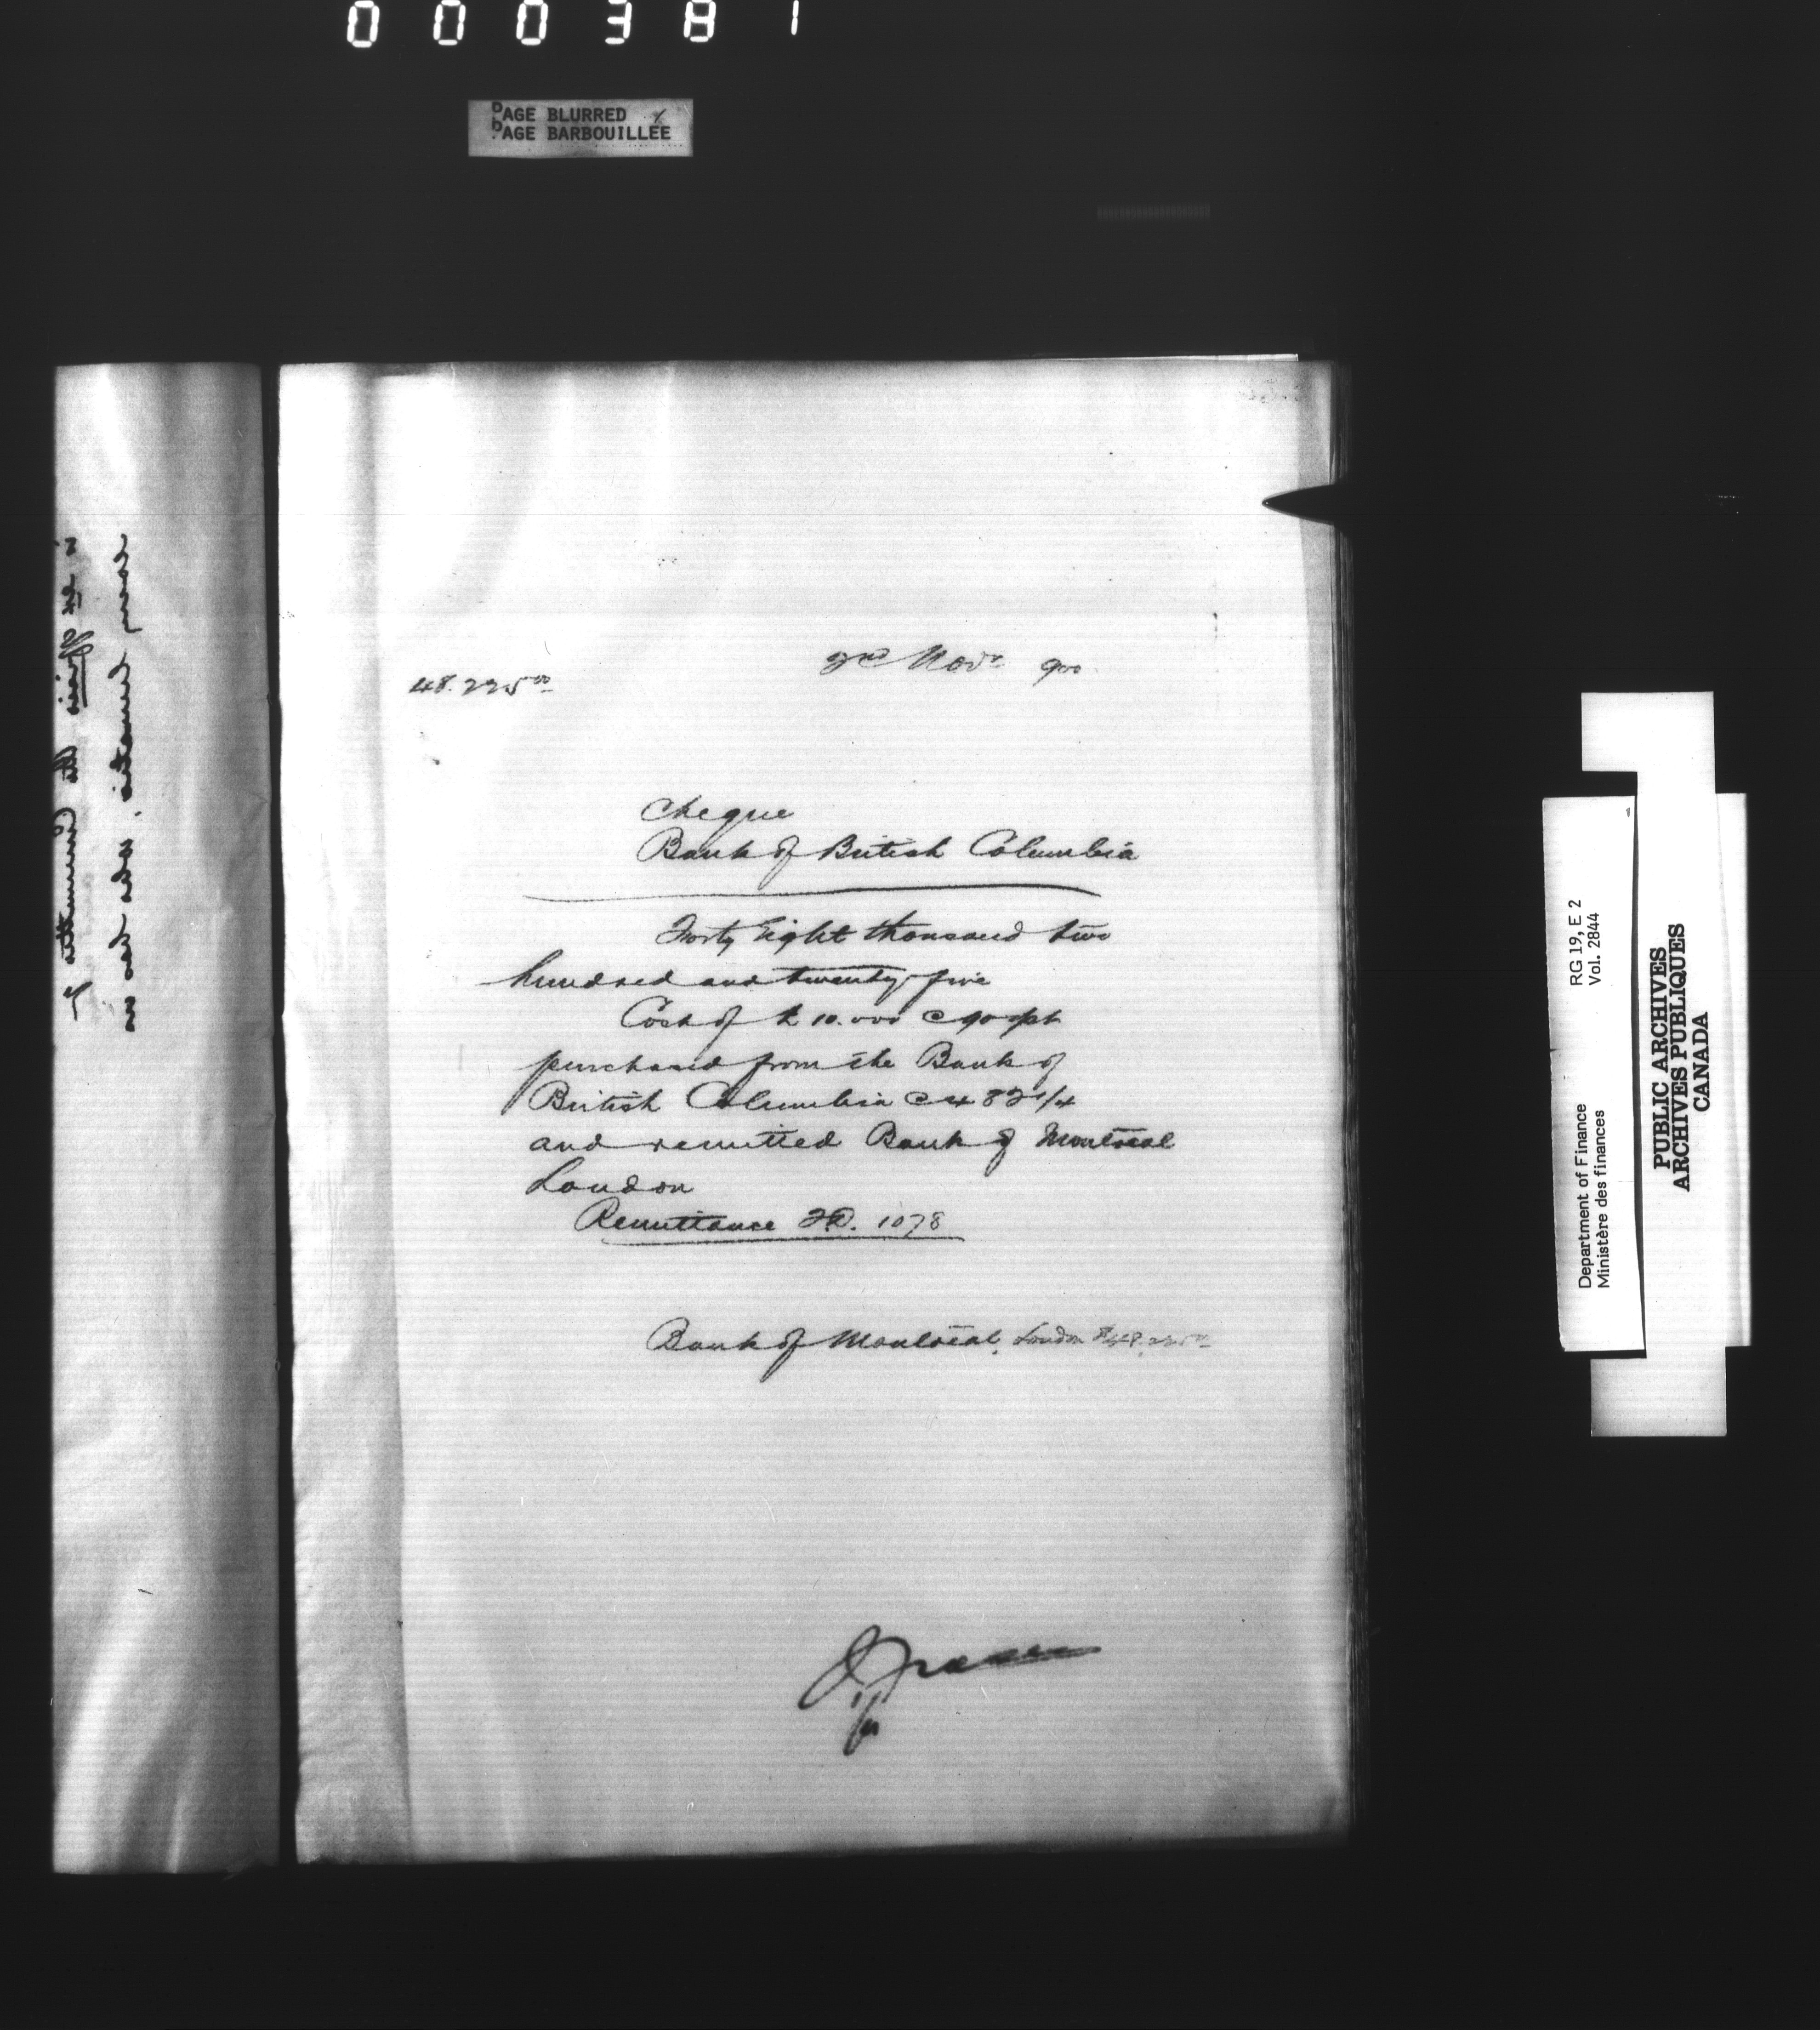 000381
PAGE BLURRED
PAGE BARBOUILLÉE
2nd Novr 900
48.225 00
Cheque
Bank of British Columbia
Forty Eight thousand two
hundred and twenty five
Cost of £ 10.000 @
purchased from the Bank of
British Columbia @ 4 82 1/4
and remitted Bank of Montreal
London
Remittance 1078
Bank of Montreal, London $48,225 00
RG 19, E 2
Vol. 2844
Department of Finance
Ministère des finances
PUBLIC ARCHIVES
ARCHIVES PUBLIQUES
CANADA